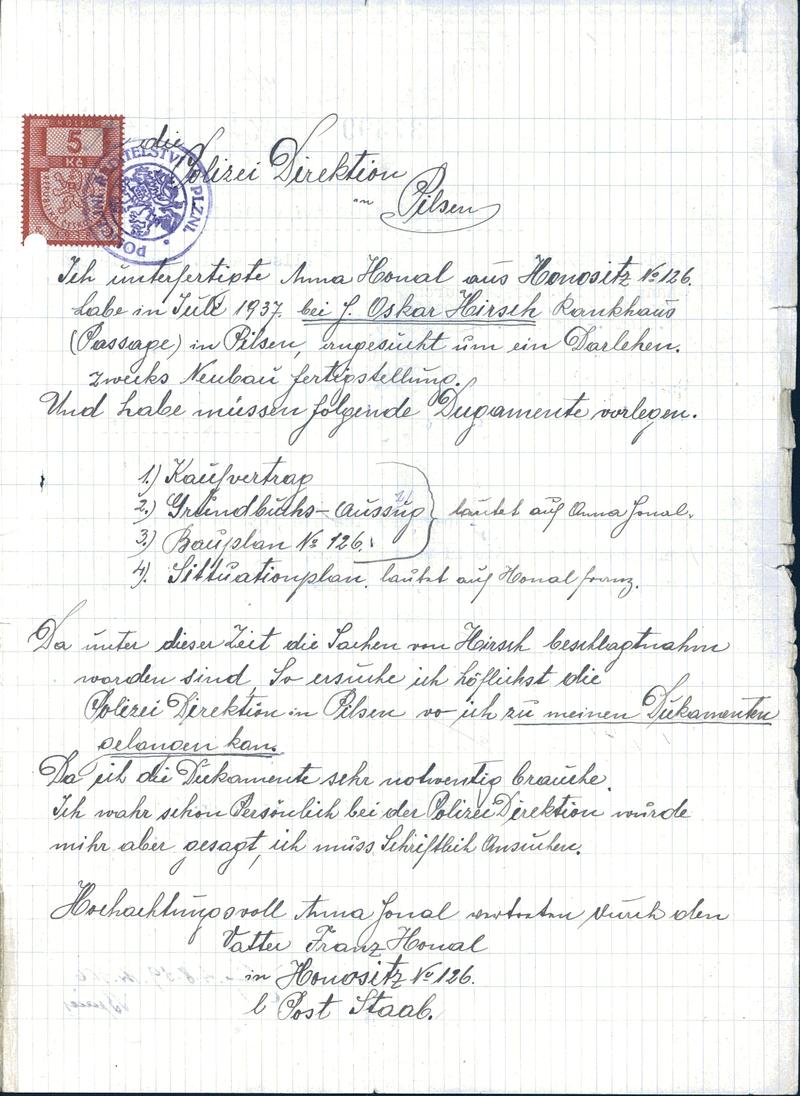 KOLEK
5
Kč
POLICEJNÍ ŘEDITELSTVÍ PLZNI.
die
Polizei Direktion
in Pilsen
Ich unterfertigte Anna Honal aus Honositz No 126.
habe in Juli 1937. bei J. Oskar Hirsch Bankhaus
(Passage) in Pilsen, angesucht um ein Darlehen.
zwecks Neubau fertigstellung.
Und habe müssen folgende Dugamente vorlegen.
1.) Kaufvertrag
2.) Grundbuchs-Auszug } lautet auf Anna Jonal.
3.) Bauplan No 126.
4). Sittuationplan. lautet auf Honal franz.
Da unter dieser Zeit die Sachen von Hirsch beschlagtnahm
worden sind. So ersuche ich höflichst die
Polizei Direktion in Pilsen wo ich zu meinen Dukamenten
gelangen kan.
Da ich die Dukamente sehr notwentig brauche.
Ich wahr schon Persönlich bei der Polizei Direktion wurde
mihr aber gesagt, ich muss Schriftlich Ansuchen.
Hochachtungsvoll Anna Jonal vertreten durch den
Vatter Franz Honal
in Honositz No 126.
Post Staab.